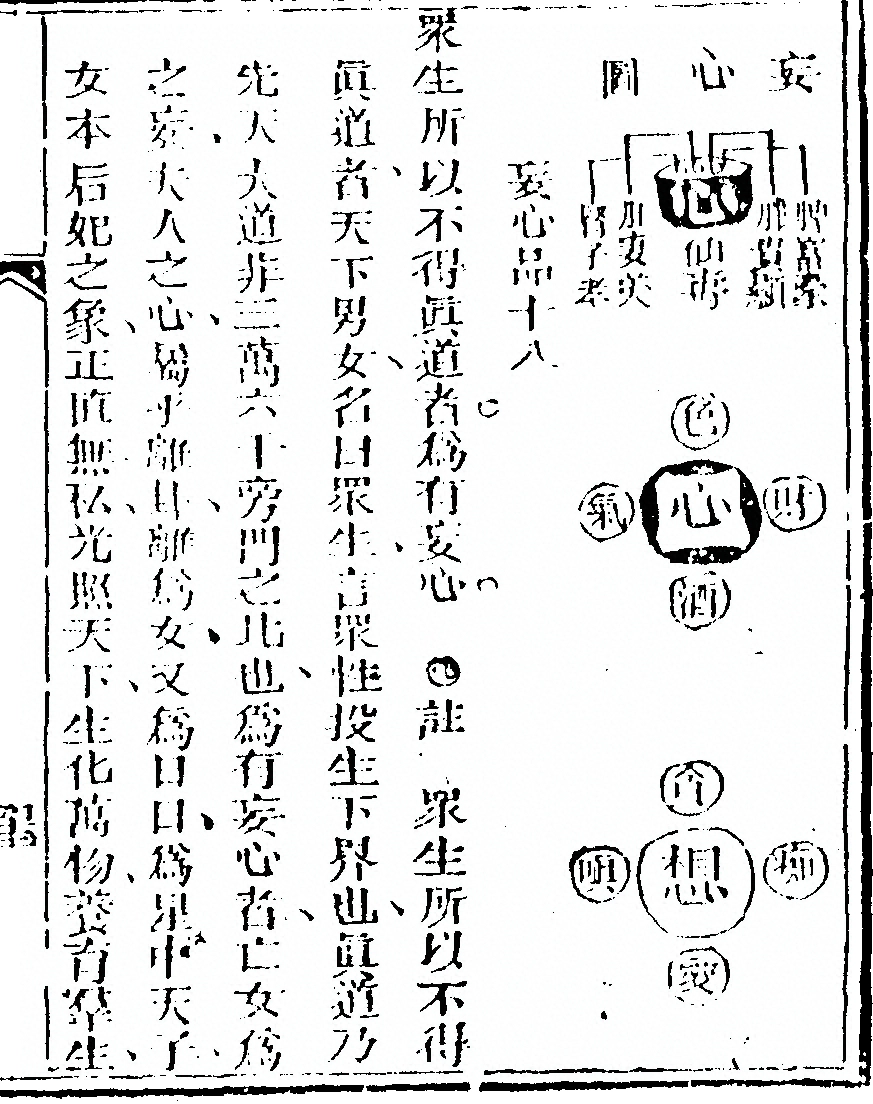 妄心圖
心
仙
色
財
心
氣
酒
貪
痴
想
嗔
愛
妄心品十八
眾生所以不得眞道者爲有妄心 註 眾生所以不得
眞道者天下男女名曰眾生言眾性投生下界也眞道乃
先天大道非三萬六千旁門之比也爲有妄心者亡女爲
之妄夫人之心屬乎離卦離爲女又爲日日爲星中天子
女本后妃之象正直無私光照天下生化萬物養育羣生